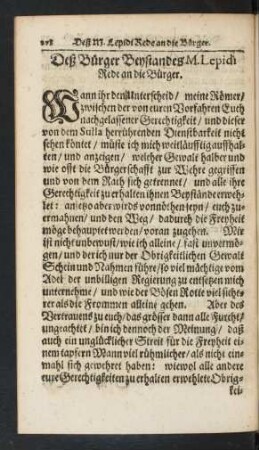 228 Deß M. Lepidi Rede an die Bürger.
Deß Bürger Beystandes M. Lepidi
Rede an die Bürger.
WAnn ihr den Unterscheid / meine Römer /
zwischen der von euren Vorfahren Euch
nachgelassener Gerechtigkeit / und dieser
von dem Sulla herrührenden Dienstbarkeit nicht
sehen köntet / müste ich mich weitläufftig auffhal-
ten / und anzeigen / welcher Gewalt halber und
wie offt die Bürgerschafft zur Wehre gegriffen
und von dem Rath sich getrennet / und alle ihre
Gerechtigkeit zu erhalten ihnen Beyständer erweh-
let: anjetzo aber wird vonnöthen seyn / euch zu er-
mahnen / und den Weg / dadurch die Freyheit
möge behauptet werden / voran zugehen. Mir
ist nicht unbewust / wie ich alleine / fast unvermö-
gen / und der ich nur der Obrigkeitlichen Gewalt
Schein und Nahmen führe / so viel mächtige vom
Adel der unbilligen Regierung zu entsetzen mich
unternehme / und wie der Bösen Rotte viel siche-
rer als die Frommen alleine gehen. Aber des
Vertrauens zu euch / das grösser dann alle Furcht /
ungeachtet / bin ich dennoch der Meinung / daß
auch ein unglücklicher Streit für die Freyheit ei-
nem tapfern Mann viel rühmlicher / als nicht ein-
mahl sich gewehret haben: wiewol alle andere
eure Gerechtigkeiten zu erhalten erwehlete Obrig-
kei-